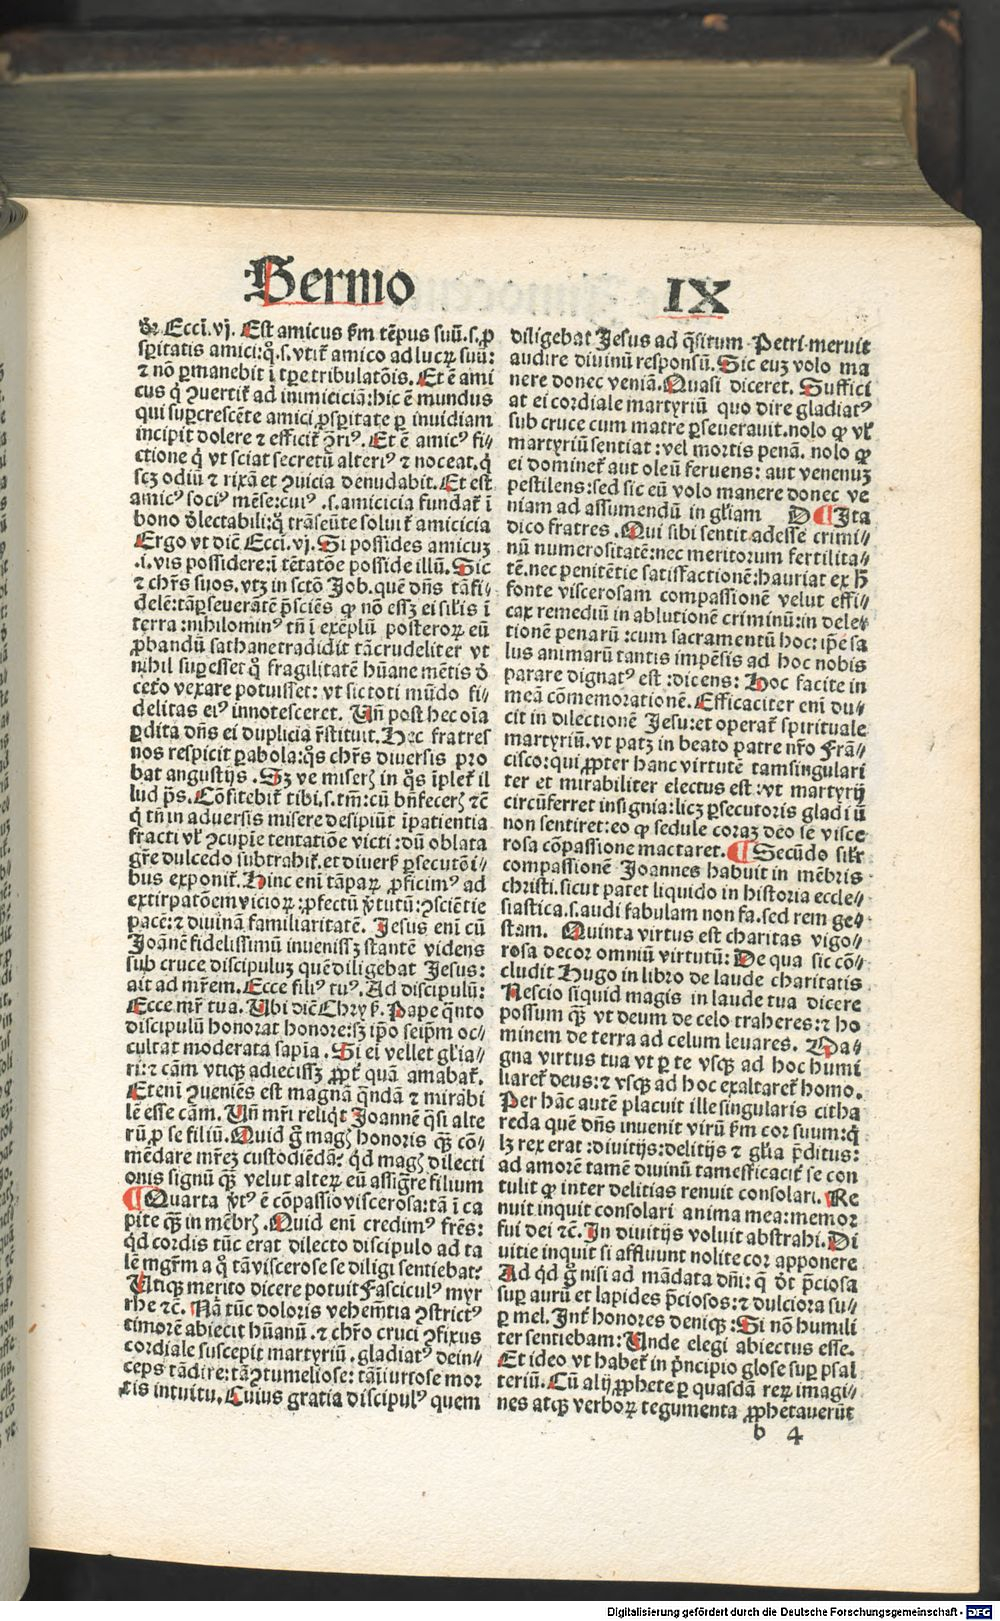 Sermo IX
dr̄ Ecci. vj. Est amicus ẜm tēpus suū.s.ꝓ
sꝑitatis amici:q̇.s.vtit᷑ amico ad lucꝝ suū:
⁊ nō ꝑmanebit ī tꝑe tribulatōis. Et ē ami
cus q̇ ꝯuertit᷑ ad inimiciciā: hic ē mundus
qui suꝑcrescēte amici ꝓsꝑitate ꝑ inuidiam
incipit dolere ⁊ efficit᷑ ꝯ̄riꝰ. Et ē amicꝰ fi⸗
ctione q̇ vt sciat secretū alteriꝰ ⁊ noceat.q̇
scꝫ odiū ⁊ rixā et ꝯuicia denudabit. Et est
amicꝰ sociꝰ mēse:cuiꝰ .s.amicicia fundat᷑ ī
bono delectabili:q̇ trāseūte soluit᷑ amicicia
Ergo vt dic̄ Ecci.vj. Si possides amicuꝫ
.i.vis possidere:i tētatōe posside illū. Sic
⁊ chr̄s suos.vtꝫ in sctō Job.quē dn̄s tā fi⸗
delē:tā ꝑseuerātē p̄sciēs ꝙ nō essꝫ ei sil̄is ī
terra :nihilominꝰ tn̄ ī exēplū posteroꝝ eū
ꝓbandū sathane tradidit tā crudeliter vt
nihil suꝑesset q̇ fragilitatē hūane mētis d̄
cetō vexare potuisset: vt sic toti mūdo fi⸗
delitas eiꝰ innotesceret. Un̄ post hec oīa
ꝑdita dn̄s ei duplicia r̄stituit. Hec fratres
nos respicit ꝑabola:q̄s chr̄s diuersis pro
bat angustijs .Sꝫ ve miseꝝ in q̇s īplet᷑ il
lud ps̄. Cōfitebit᷑ tibi.s.tm̄:cū bn̄feceꝝ ⁊c̄
q̇ tn̄ in aduersis misere desipiūt īpatientia
fracti vl̓ ꝯcupie tentatiōe victi :dū oblata
gr̄e dulcedo subtrahit᷑.et diuerẜ ꝑsecutōi⸗
bus exponit᷑. Hinc eni tāpaꝝ ꝓficimꝰ ad
extirpatōem vicioꝝ :ꝓfectū v̓tutū:ꝯsciētie
pacē:⁊ diuinā familiaritatē. Jesus eni cū
Joānē fidelissimū inuenissꝫ stantē videns
sub cruce discipuluꝫ quē diligebat Jesus:
ait ad mr̄em. Ecce filiꝰ tuꝰ. Ad discipulū:
Ecce mr̄ tua. Ubi dic̄ Chryẜ. Pape q̄nto
discipulū honorat honore:sꝫ ip̄o seip̄m oc⸗
cultat moderata sapīa .Si ei vellet gl̓ia⸗
ri:⁊ cām vtiqꝫ adiecissꝫ ꝓpt᷑ quā amabat᷑.
Etenī ꝯueniēs est magnā q̄ndā ⁊ mirabi
lē esse cām. Un̄ mr̄i reliq̇t Joannē q̄si alte
rū ꝓ se filiū. Quid g̊ magꝭ honoris qꝫ cō⸗
mēdare mr̄eꝫ custodiēdā? q̇d magꝭ dilecti
onis signū qꝫ velut alteꝝ eū assig̓re filium
¶ Quarta v̓tꝰ ē cōpassio viscerosa:tā ī ca
pite qꝫ in mēbrꝭ Quid eni credimꝰ fr̄es:
q̇d cordis tūc erat dilecto discipulo ad ta
lē mgr̄m a q̇ tā viscerose se diligi sentiebat?
Utiqꝫ merito dicere potuit Fasciculꝰ myr
rhe ⁊c̄. Nā tūc doloris vehemētia ꝯstrictꝰ
timorē abiecit hūanū.⁊ chr̄o cruci ꝯfixus
cordiale suscepit martyriū .gladiatꝰ dein⸗
ceps tā dire:tā ꝯtumeliose: tā iniurtose mor
tis intuitu. Cuius gratia discipulꝰ quem
diligebat Jesus ad q̄situm Petri meruit
audire diuinū responsū. Sic euꝫ volo ma
nere donec veniā. Quasi diceret. Suffici
at ei cordiale martyriū quo dire gladiatꝰ
sub cruce cum matre ꝑseuerauit.nolo ꝙ vl̓
martyriū sentiat :vel mortis penā. nolo ꝙ
ei dominet᷑ aut oleū feruens: aut venenuꝫ
pestilens:sed sic eū volo manere donec ve
niam ad assumendū in gl̓iam D ¶ Ita
dico fratres .Qui sibi sentit adesse crimi⸗
nū numerositatē:nec meritorum fertilita⸗
tē.nec penitētie satisfactionē:hauriat ex h̄
fonte viscerosam compassionē velut effi⸗
cax remediū in ablutionē criminū:in dele⸗
tionē penarū :cum sacramentū hoc: ip̄e sa
lus animarū tantis impēsis ad hoc nobis
parare dignatꝰ est :dicens: Hoc facite in
meā cōmemorationē. Efficaciter enī du⸗
cit in dilectionē Jesu:et operat᷑ spirituale
martyriū.vt patꝫ in beato patre nr̄o Frā⸗
cisco:qui ꝓpter hanc virtutē tam singulari
ter et mirabiliter electus est :vt martyrij
circūferret insignia:licꝫ ꝑsecutoris gladiū
non sentiret:eo ꝙ sedule coraꝫ deo se visce
rosa cōpassione mactaret. ¶ Secūdo sil̓r
compassionē Joannes habuit in mēbris
christi.sicut patet liquido in historia eccle⸗
siastica.s.audi fabulam non fa.sed rem ge⸗
stam. Quinta virtus est charitas vigo⸗
rosa decor omniū virtutū: De qua sic cō⸗
cludit Hugo in libro de laude charitatis
Nescio siquid magis in laude tua dicere
possum qꝫ vt deum de celo traheres:⁊ ho
minem de terra ad celum leuares. Ma⸗
gna virtus tua vt ꝑ te vsqꝫ ad hoc humi
liaret᷑ deus:⁊ vsqꝫ ad hoc exaltaret᷑ homo.
Per hāc autē placuit ille singularis citha
reda quē dn̄s inuenit virū ẜm cor suum:q̇
lꝫ rex erat :diuitijs:delitijs ⁊ gl̓ia p̄ditus:
ad amorē tamē diuinū tam efficacit᷑ se con
tulit ꝙ inter delitias renuit consolari. Re
nuit inquit consolari anima mea:memor
fui dei ⁊c̄. In diuitijs voluit abstrahi. Di
uitie inquit si affluunt nolite cor apponere
Ad q̇d g̊ nisi ad mādata dn̄i: q̄ dt̄ p̄ciosa
suꝑ aurū et lapides p̄ciosos:⁊ dulciora su⸗
ꝑ mel. Int᷑ honores deniqꝫ :Si nō humili
ter sentiebam: Unde elegi abiectus esse.
Et ideo vt habet᷑ in p̄ncipio glose suꝑ psal
teriū. Cū alij ꝓphete ꝑ quasdā reꝝ imagi⸗
nes atqꝫ verboꝝ tegumenta ꝓphetauerūt
b 4
Digitalisierung gefördert durch die Deutsche Forschungsgemeinschaft - DFG